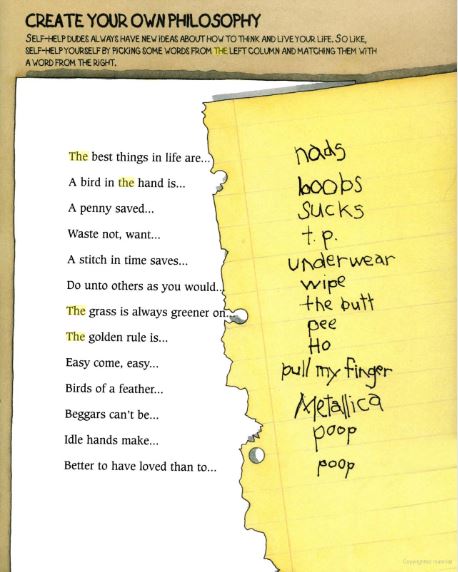 CREATE YOUR OWN PHILOSOPHY
SELF-HELP DUDES ALWAYS HAVE NEW IDEAS ABOUT HOW TO THINK AND LIVE YOUR LIFE. SO LIKE,
SELF-HELP YOURSELF BY PICKING SOME WORDS FROM THE LEFT COLUMN AND MATCHING THEM WITH
A WORD FROM THE RIGHT.
The best things in life are...
A bird in the hand is...
A penny saved...
Waste not, want...
A stitch in time saves...
Do unto others as you would...
The grass is always greener on...
The golden rule is...
Easy come, easy...
Birds of a feather...
Beggars can't be...
Idle hands make...
Better to have loved than to...
nads
boobs
sucks
t.p.
underwear
wipe
the butt
pee
Ho
pull my finger
Metallica
poop
poop
Copyrighted material